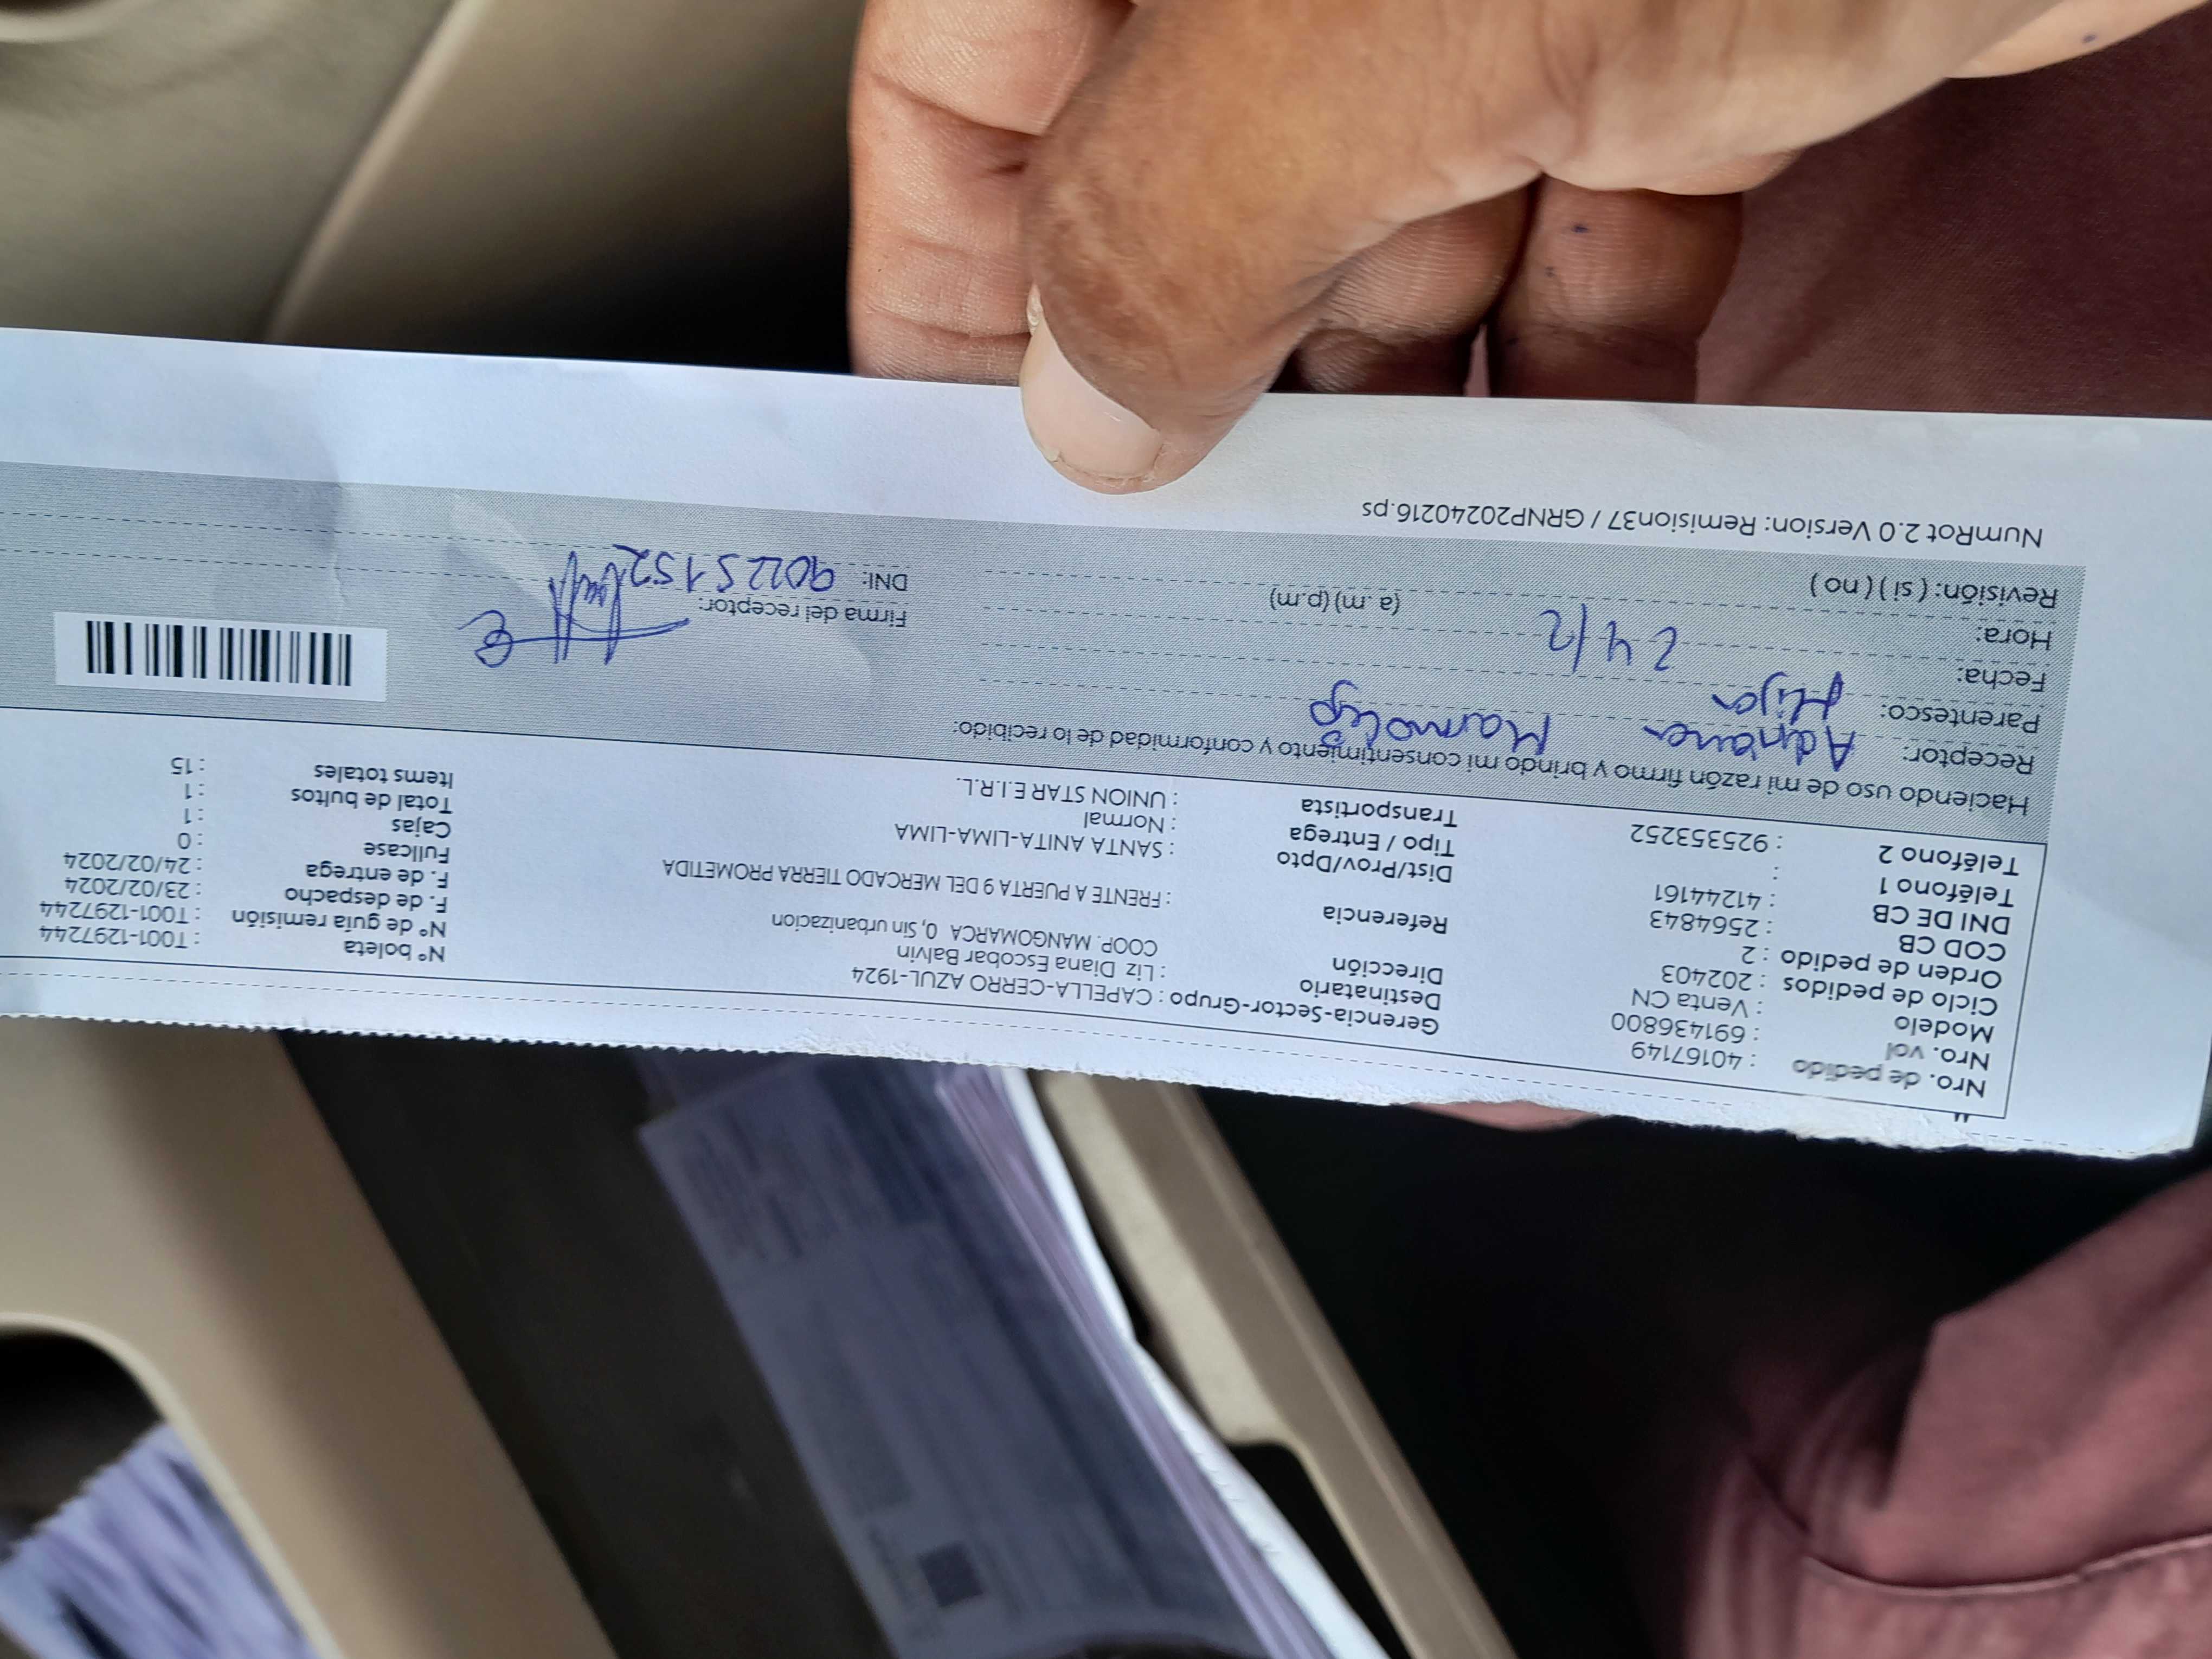 Nro. de pedido : 40167149
Nro. vol : 691436800
Modelo : Venta CN
Ciclo de pedidos : 202403
Orden de pedido : 2
COD CB : 2564843
DNI DE CB : 41244161
Teléfono 1 :
Teléfono 2 : 925353252
Gerencia-Sector-Grupo : CAPELLA-CERRO AZUL-1924
Destinatario : Liz Diana Escobar Balvin
Dirección COOP. MANGOMARCA 0, Sin urbanizacion
Referencia : FRENTE A PUERTA 9 DEL MERCADO TIERRA PROMETIDA
Dist/Prov/Dpto : SANTA ANITA-LIMA-LIMA
Tipo / Entrega : Normal
Transportista : UNION STAR E.I.R.L.
Nº boleta : T001-1297244
Nº de guía remisión : T001-1297244
F. de despacho : 23/02/2024
F. de entrega : 24/02/2024
Fullcase : 0
Cajas : 1
Total de bultos : 1
Items totales : 15
Haciendo uso de mi razón firmo y brindo mi consentimiento y conformidad de lo recibido:
Receptor: Adriana Marmolejo
Parentesco: Hija
Fecha: 24/2
Hora: (a.m)(p.m)
Revisión: ( si ) ( no )
Firma del receptor:
DNI: 90225152
NumRot 2.0 Version: Remision37 / GRNP20240216.ps